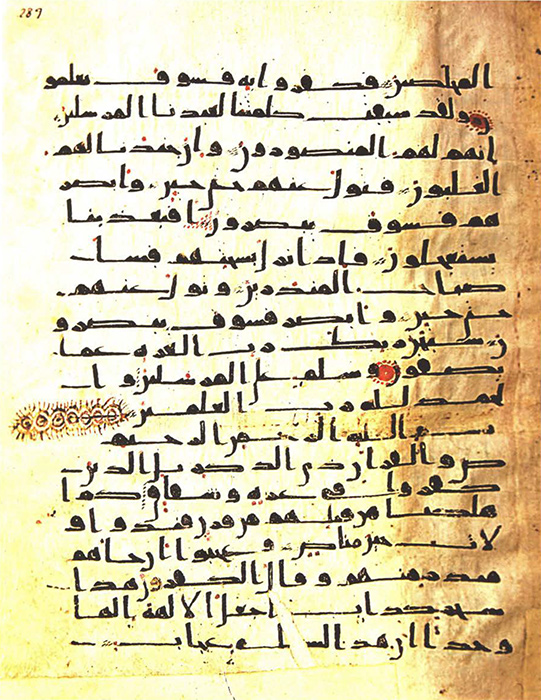 287
المخلصين فكفروا به فسوف يعلمو
ن ولقد سبقت كلمتنا لعبدنا المرسلين
انهم لهم المنصورون وان جندنا لهم
الغلبون فتول عنهم حتى حين وابصر
هم فسوف يبصرون افبعذبنا
يستعجلون فاذا نزل بسحتهم فسا
صباح المنذرين وتول عنهم
حتى حين وابصر فسوف يبصرو
ن سبحن ربك رب العزه عما
يصفون وسلم على المرسلين وا
لحمد لله رب العلمين
بسم الله الرحمن الرحيم
ص والقران ذي الذكر بل الذين
كفروا في عزه وشقاق كم ا
هلكنا من قبلهم من قرن فنادوا و
لات حين مناص وعجبوا ان جاهم
منذر منهم وقال الكفرون هذا
سحر كذاب اجعل الالهه الها
وحدا ان هذا لشي عجاب